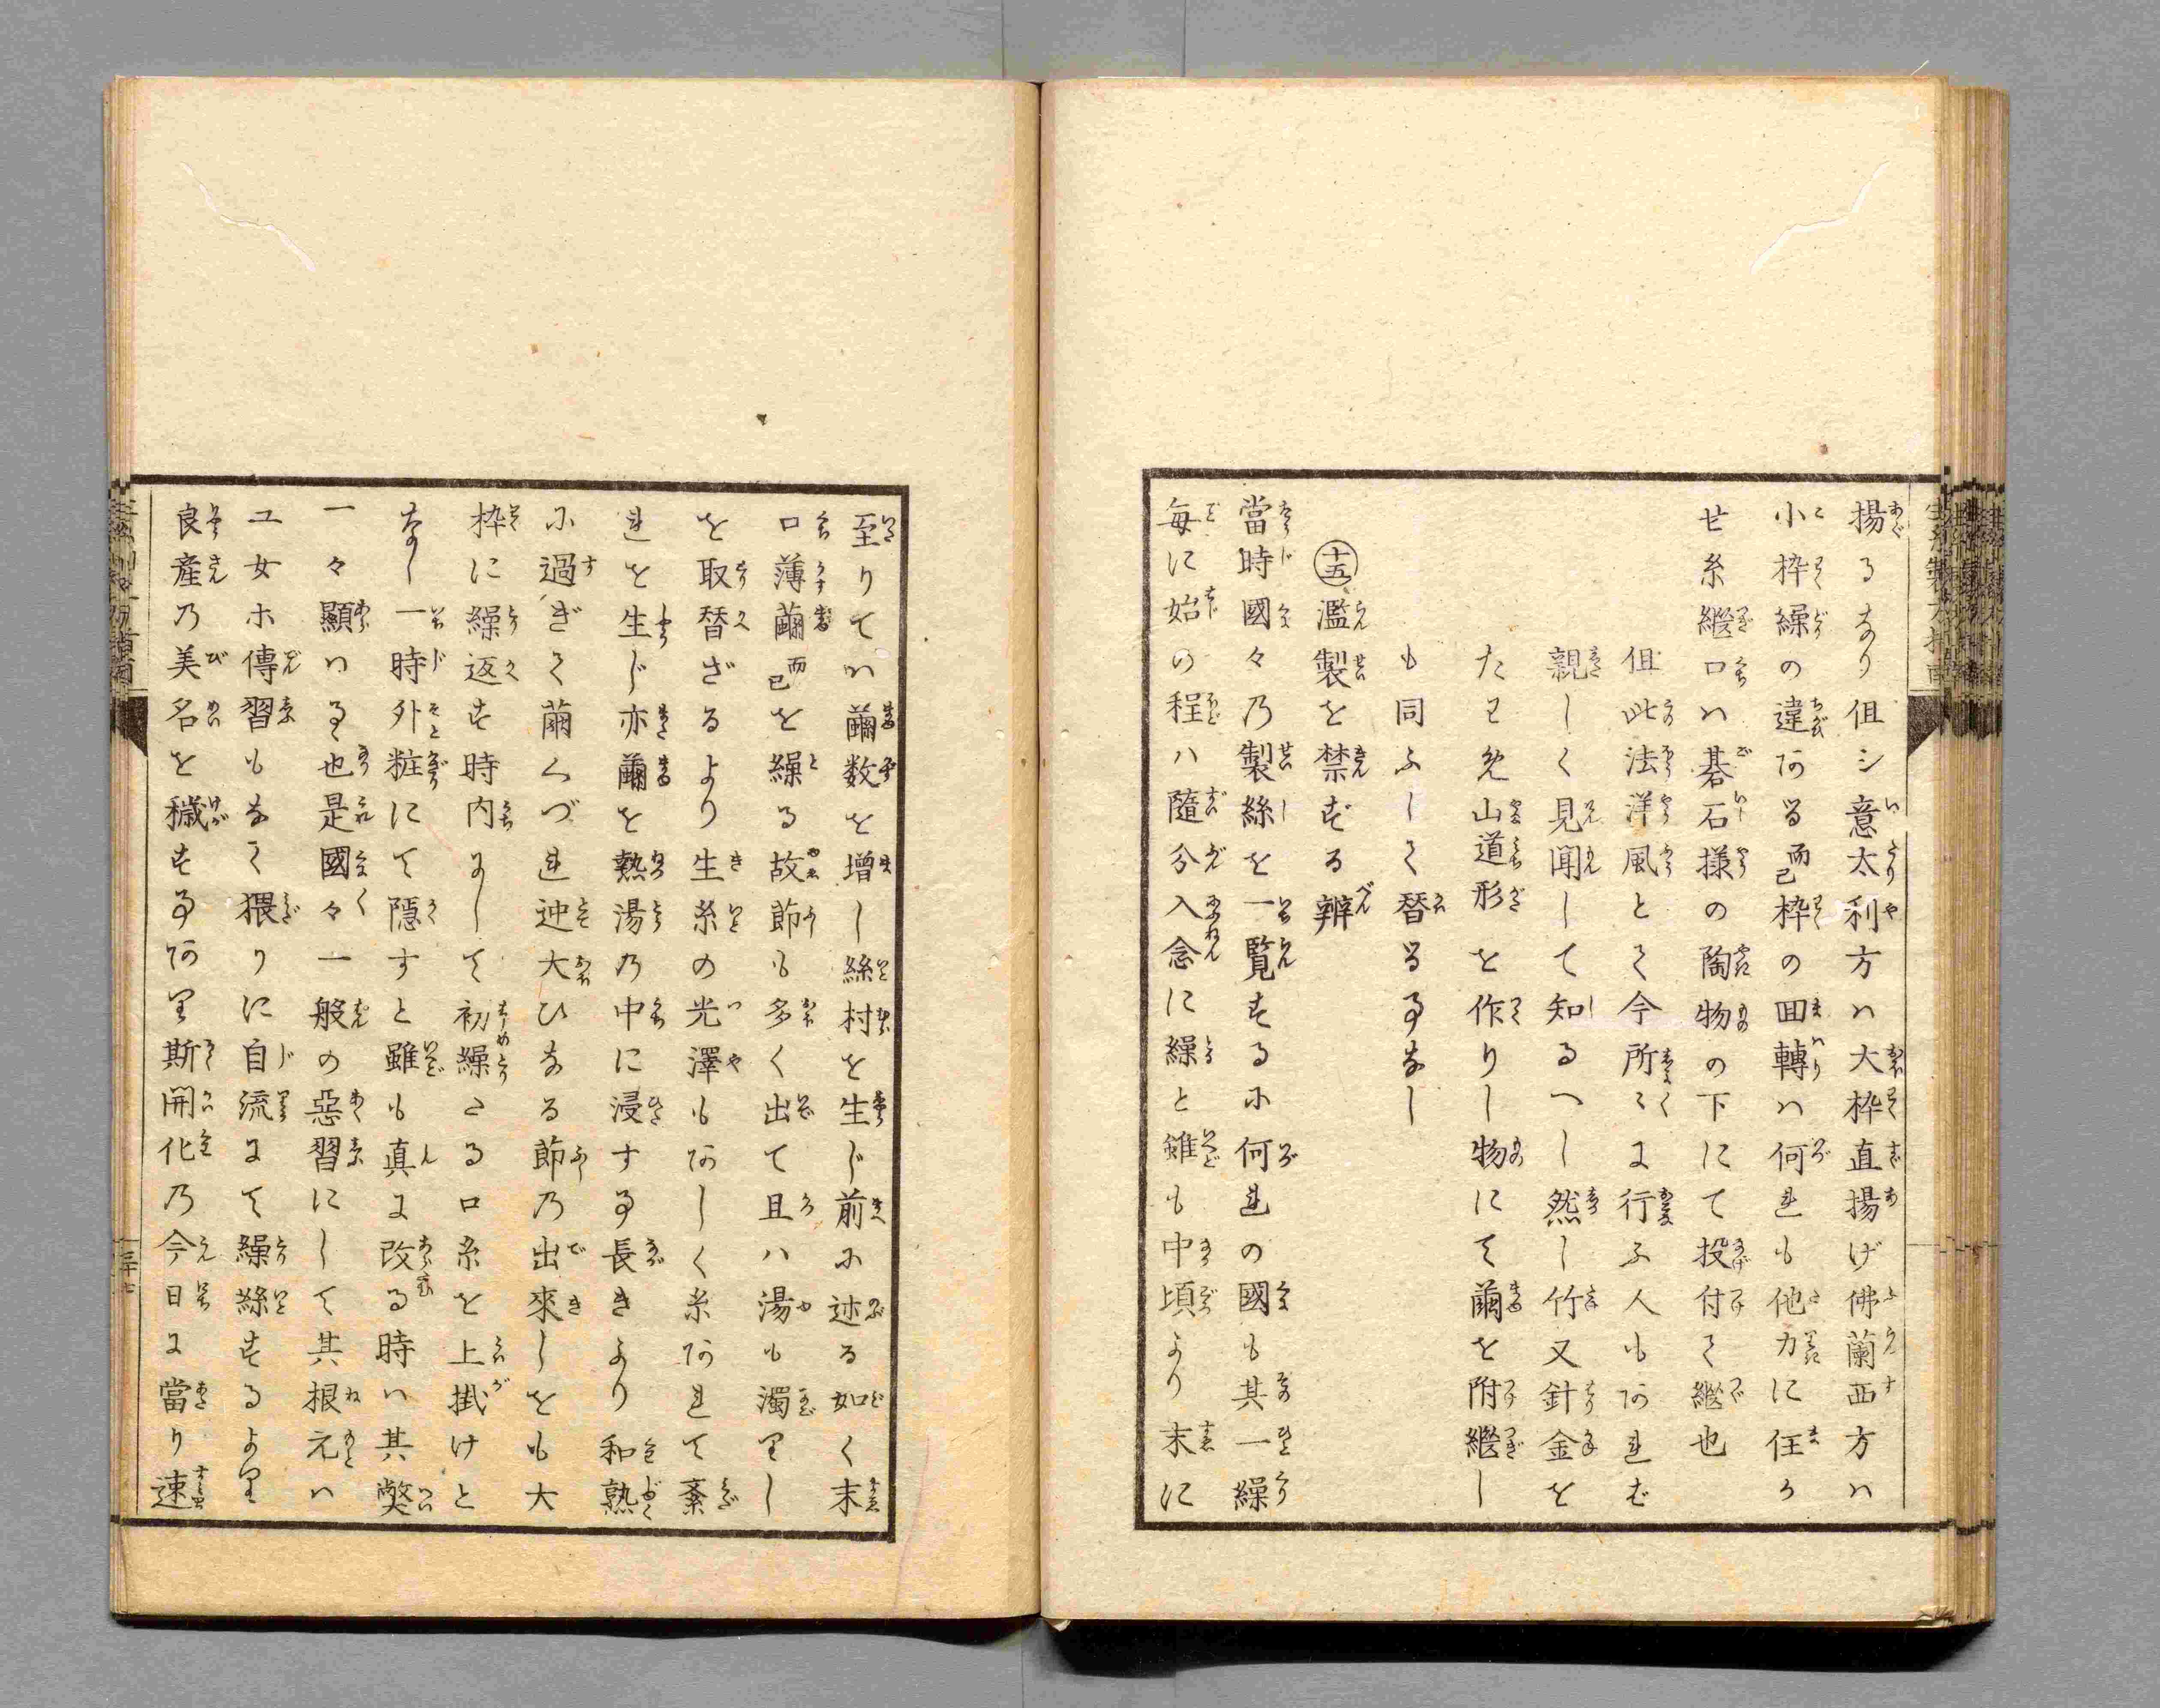 揚るなり但シ意太利方ハ大枠直揚げ佛蘭西方ハ
小枠繰の違ある而已枠の囬轉ハ何れも他力に任か
せ糸繼口ハ碁石様の陶物の下にて投付て繼也
但此法洋風とて今所〻に行ふ人もあれど
親しく見聞して知るへし然し竹又針金を
たわめ山道形を作りし物にて繭を附繼し
も同ふして替る事なし
十五 濫製を禁ずる辨
當時國々乃製絲を一覧するに何れの國も其一繰
毎に始の程ハ隨分入念に繰と雖も中頃より末に
至りてハ繭数を増し絲村を生じ前に述る如く末
口薄繭而已を繰る故節も多く出て且ハ湯も濁りし
を取替ざるより生糸の光澤もあしく糸あれて紊
れを生じ亦繭を熱湯乃中に浸する事長きより和熟
に過ぎて繭くづれ迚大ひなる節乃出來しをも大
枠に繰返す時内にして初繰たる口糸を上掛けと
なし一時外粧にて隠すと雖も真に改る時ハ其獘
一々顯ハる也是國々一般の惡習にして其根元ハ
工女ホ傳習もなく猥りに自流にて繰絲するより
良産乃美名を穢する事あり斯開化乃今日に當り速
三十七